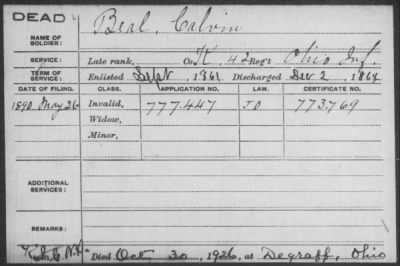 DEAD
NAME OF SOLDIER: Beal, Calvin
SERVICE: Late rank, Co. K, 42 Reg't Ohio Inf.
TERM OF SERVICE: Enlisted Sept, 1861 Discharged Dec 2, 1864
DATE OF FILING. CLASS. APPLICATION NO. LAW. CERTIFICATE NO.
1890 May 26 Invalid, 777.447 773.769
Widow,
Minor,
ADDITIONAL SERVICES:
REMARKS:
Died Oct 30, 1926, at Degraff, Ohio